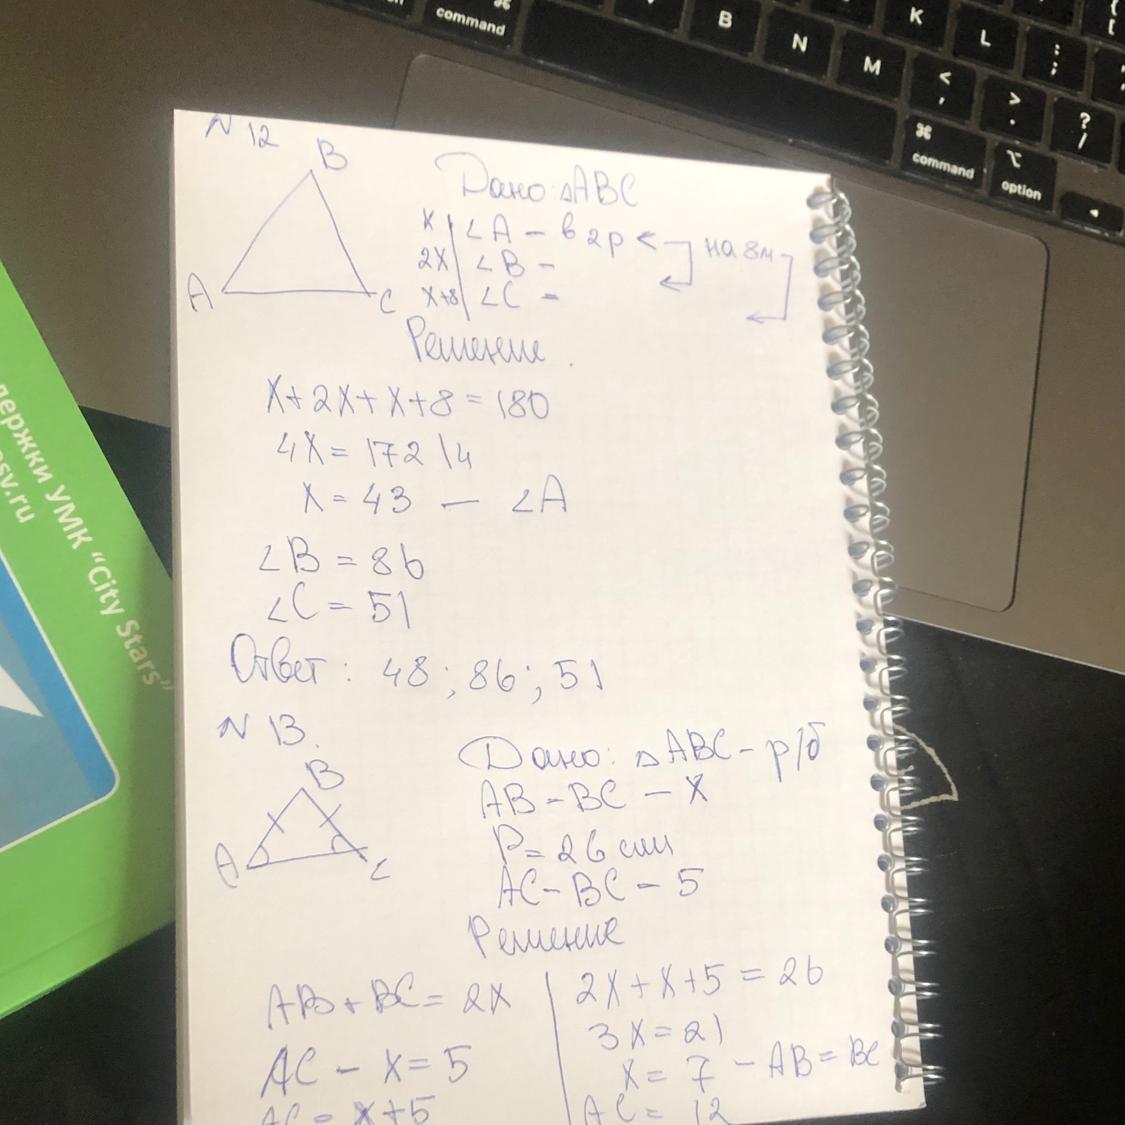 N 12
B
A
C
Дано: △ABC
x ∠A - в 2р <
на 8м
2x ∠B -
x+8 ∠C =
Решение
x+2x+x+8=180
4x=172 |4
x=43 — ∠A
∠B=86
∠C=51
Ответ: 48; 86; 51
N 13.
B
A
C
Дано: △ABC- р/б
AB=BC - x
P=26см
AC-BC - 5
Решение
AB+BC=2x
AC - x=5
AC= x+5
2x+x+5=26
3x=21
x=7 - AB=BC
AC=12
держки УМК "City Stars"
sv.ru
command
B
N
M
K
L
:
;
<
,
>
.
?
/
⌘
command
⌥
option